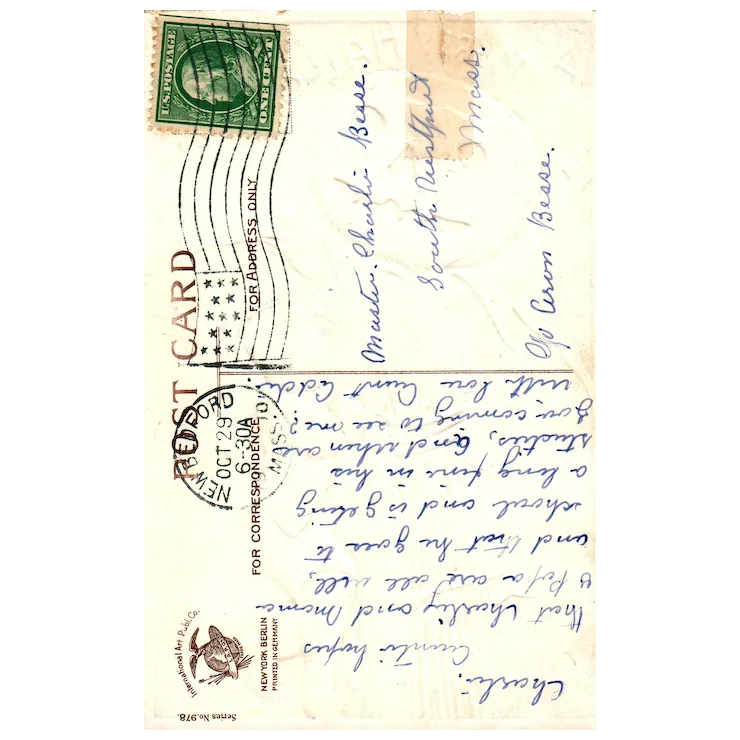 POST CARD
FOR CORRESPONDENCE
FOR ADDRESS ONLY
U.S. POSTAGE
ONE CENT
NEW BEDFORD
OCT 29
6-30A
MASS.
Charlie.
Auntie hopes
that Charley and Mama
& Papa are all well,
and that he goes to
school and is geting
along fine in his
studies, and when are
you coming to see me?
with love Aunt Addie.
Master. Charlie Besse.
South Westport
Mass.
c/o Aron Besse.
International Art Publ. Co.
NEW YORK BERLIN
PRINTED IN GERMANY
Series No. 978.